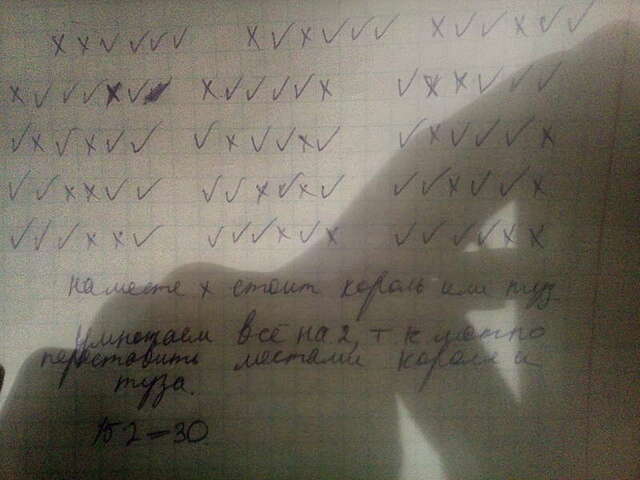 х х ✓ ✓ ✓ ✓   х ✓ х ✓ ✓ ✓   х ✓ ✓ х ✓ ✓
х ✓ ✓ ✓ х ✓   х ✓ ✓ ✓ ✓ х   ✓ х х ✓ ✓ ✓
✓ х ✓ х ✓ ✓   ✓ х ✓ ✓ х ✓   ✓ х ✓ ✓ ✓ х
✓ ✓ х х ✓ ✓   ✓ ✓ х ✓ х ✓   ✓ ✓ х ✓ ✓ х
✓ ✓ ✓ х х ✓   ✓ ✓ ✓ х ✓ х   ✓ ✓ ✓ ✓ х х
на месте х стоит король или туз
умножаем всё на 2, т к можно
переставить местами короля и
туза.
15 2 = 30